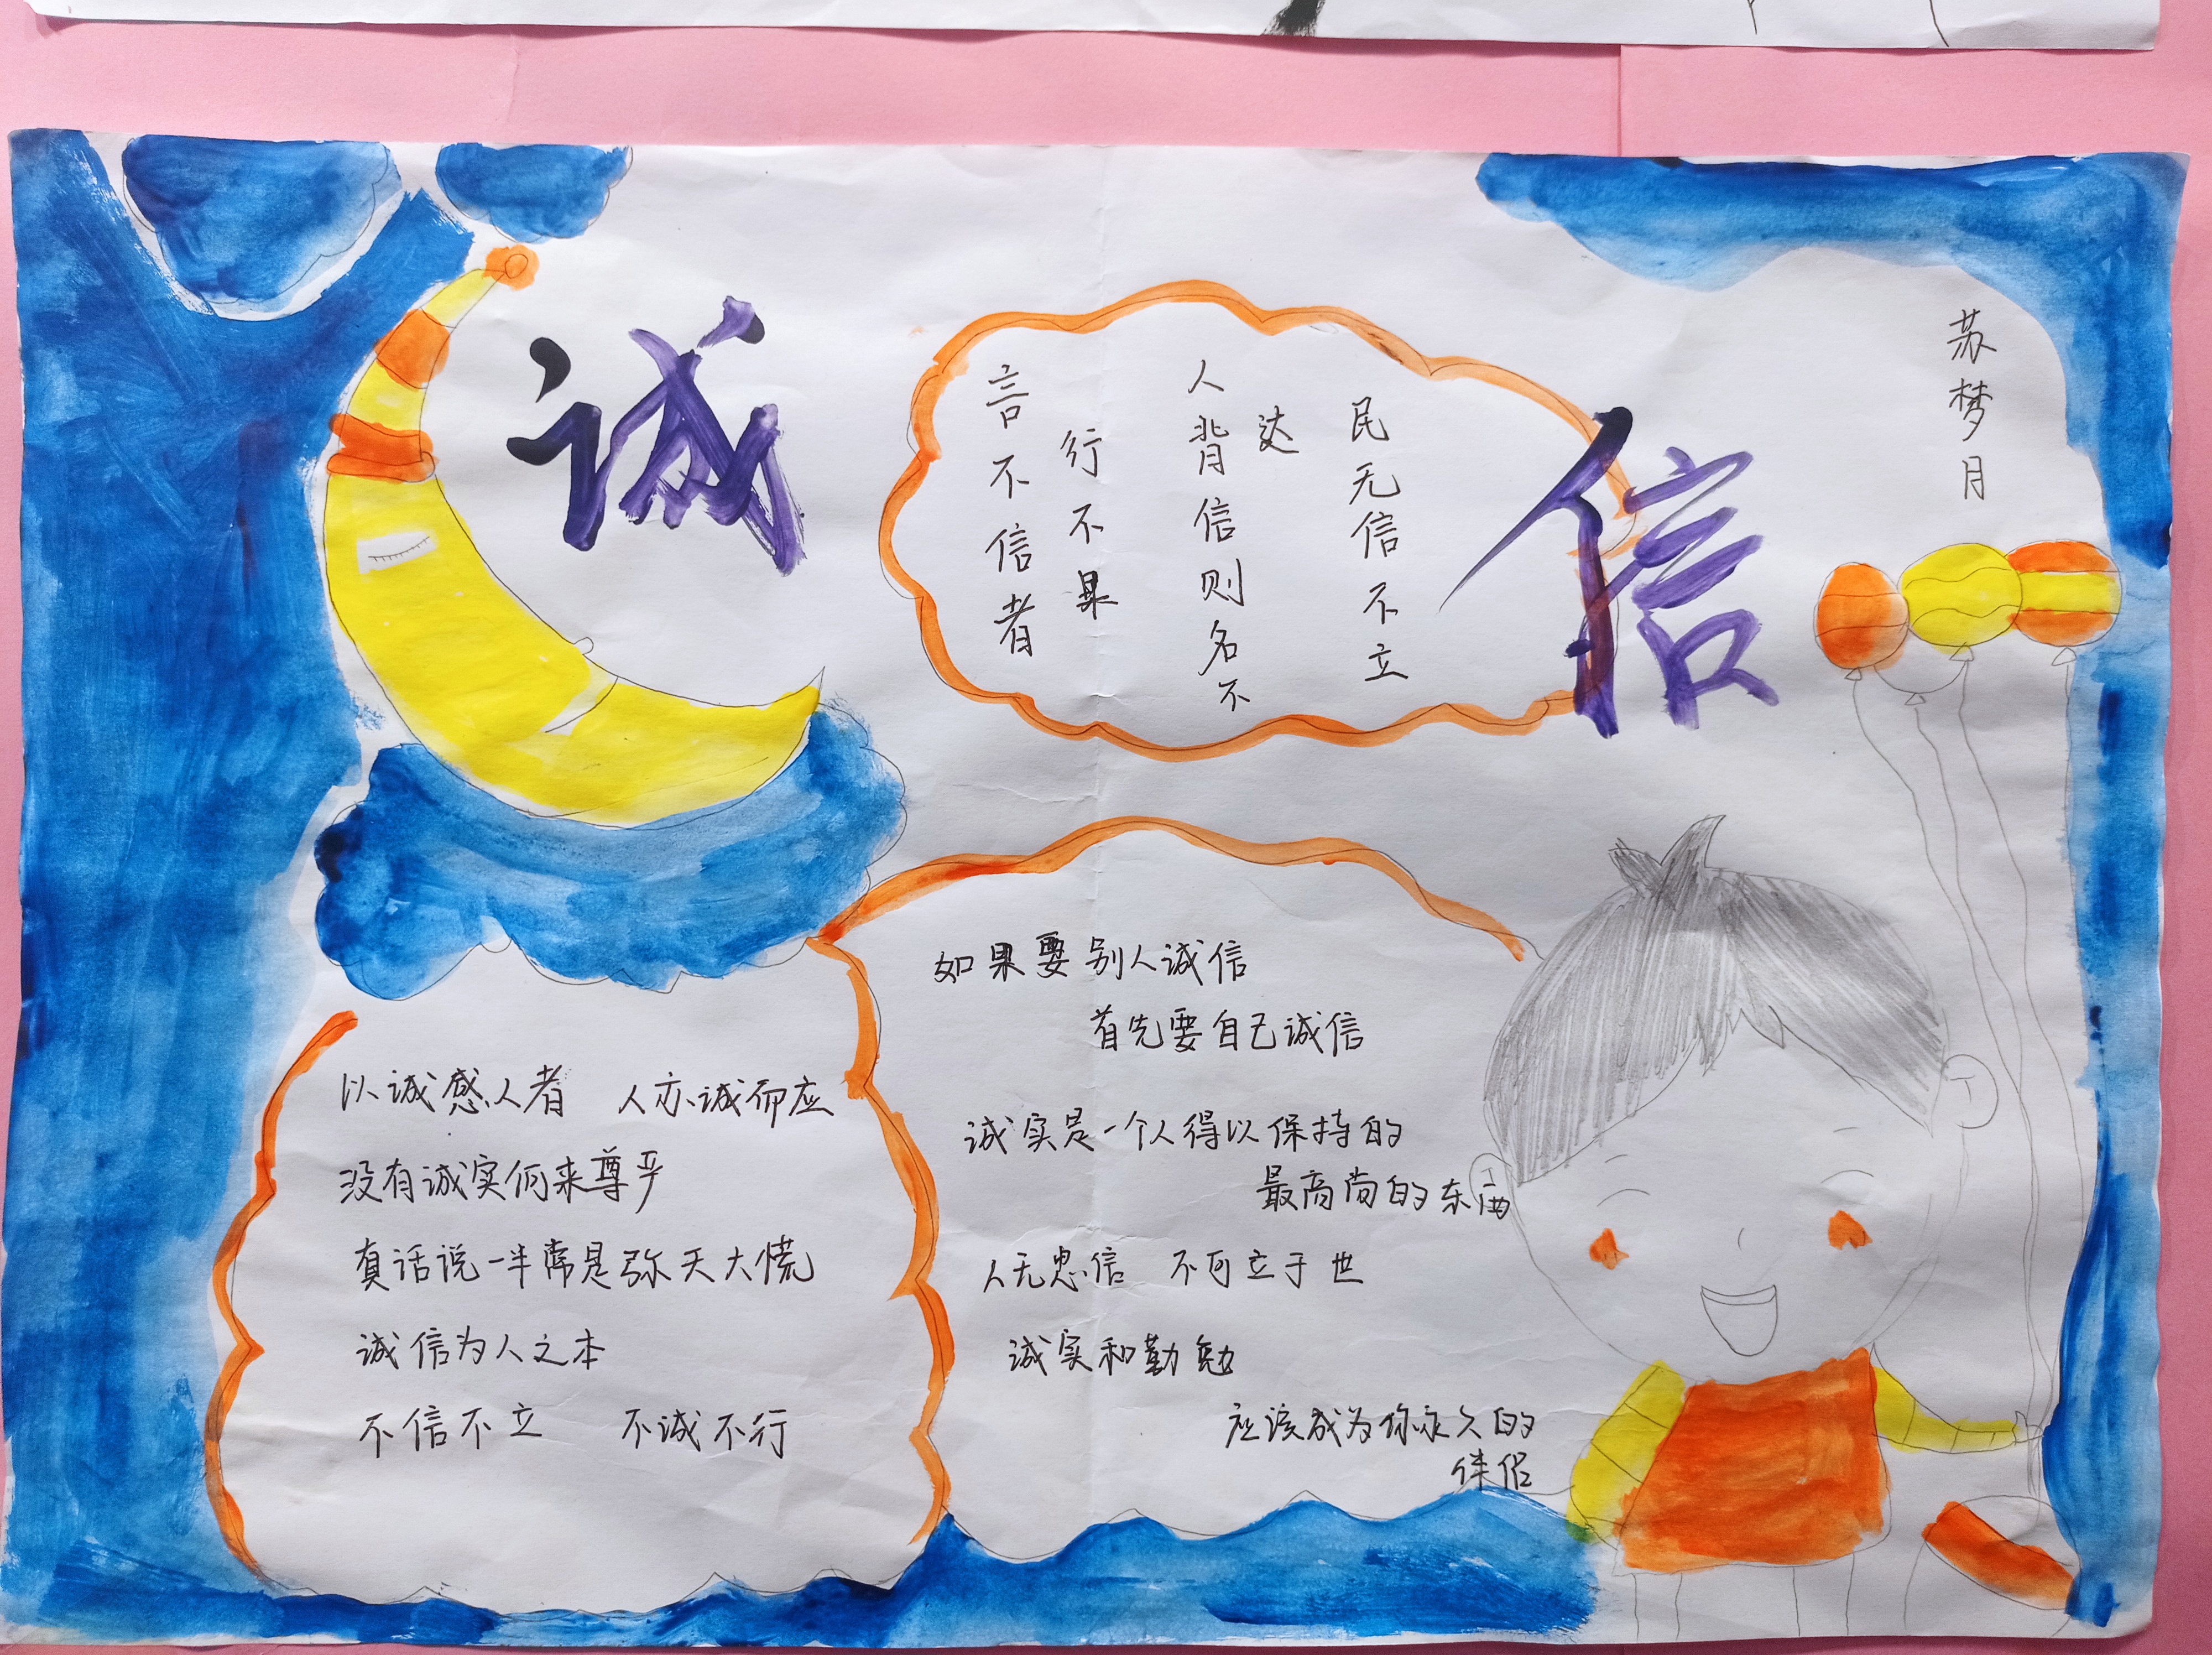 诚
信
苏梦月
言不信者
行不果
人背信则名不
达
民无信不立
如果要别人诚信
首先要自己诚信
诚实是一个人得以保持的
最高尚的东西
人无忠信 不可立于世
诚实和勤勉
应该成为你永久的
伴侣
以诚感人者 人亦诚而应
没有诚实何来尊严
真话说一半常是弥天大慌
诚信为人之本
不信不立 不诚不行